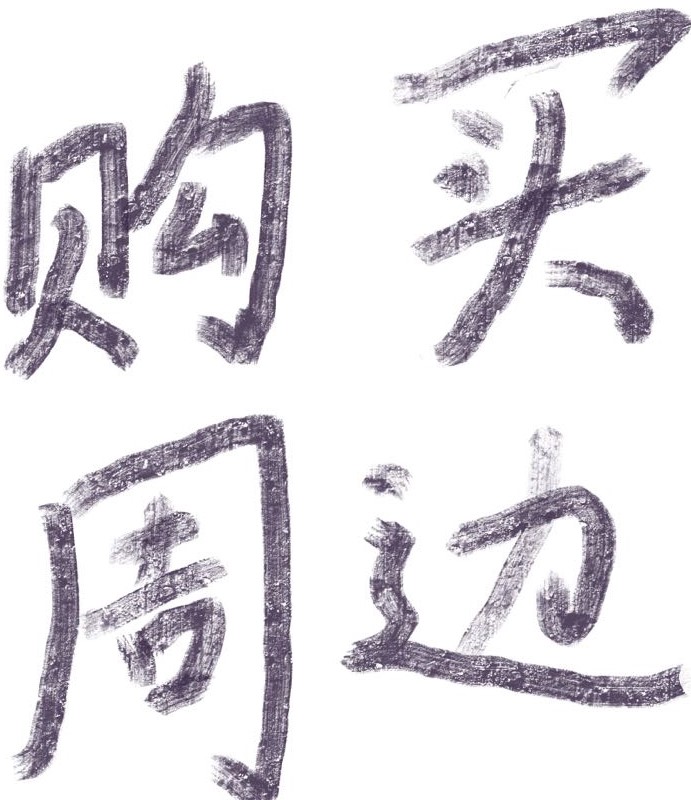 购买
周边